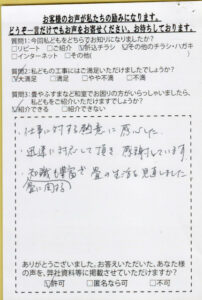 お客様のお声が私たちの励みになります。
どうぞ一言だけでもお声をお寄せください。お待ちしております。
質問1:今回私どもをどちらでお知りになりましたか?
□リピート □ご紹介 ☑折込チラシ ☑その他のチラシ・ハガキ
□インターネット □その他( )
質問2:私どもの工事にはご満足いただけましたでしょうか?
☑大満足 □満足 □やや不満 □不満
質問3:畳やふすまなど和室でお困りの方がいらっしゃいましたら、
私どもをご紹介いただけますでしょうか?
☑紹介できる □紹介できない
・仕事に対する熱意に感心した。
・迅速に対応して頂き感謝しています。
・知識も豊富で畳の生活を見直しました
畳に関する
ありがとうございました。お答えいただいた、あなた様
の声を、弊社資料等に掲載させていただけますか?
☑許可 □匿名なら可 □不可